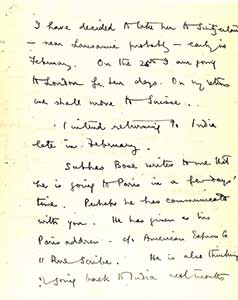 I have decided to take her to Switzerland
— near Lausanne probably — early in
February. On the 26th I am going
to London for ten days. On my return
we shall move to Suisse.
I intend returning to India
late in February.
Subhas Bose writes to me that
he is going to Paris in a few days'
time. Perhaps he has communicated
with you. He has given as his
Paris address - c/o American Express Co
11 Rue Scribe. He is also thinking
of going back to India next month